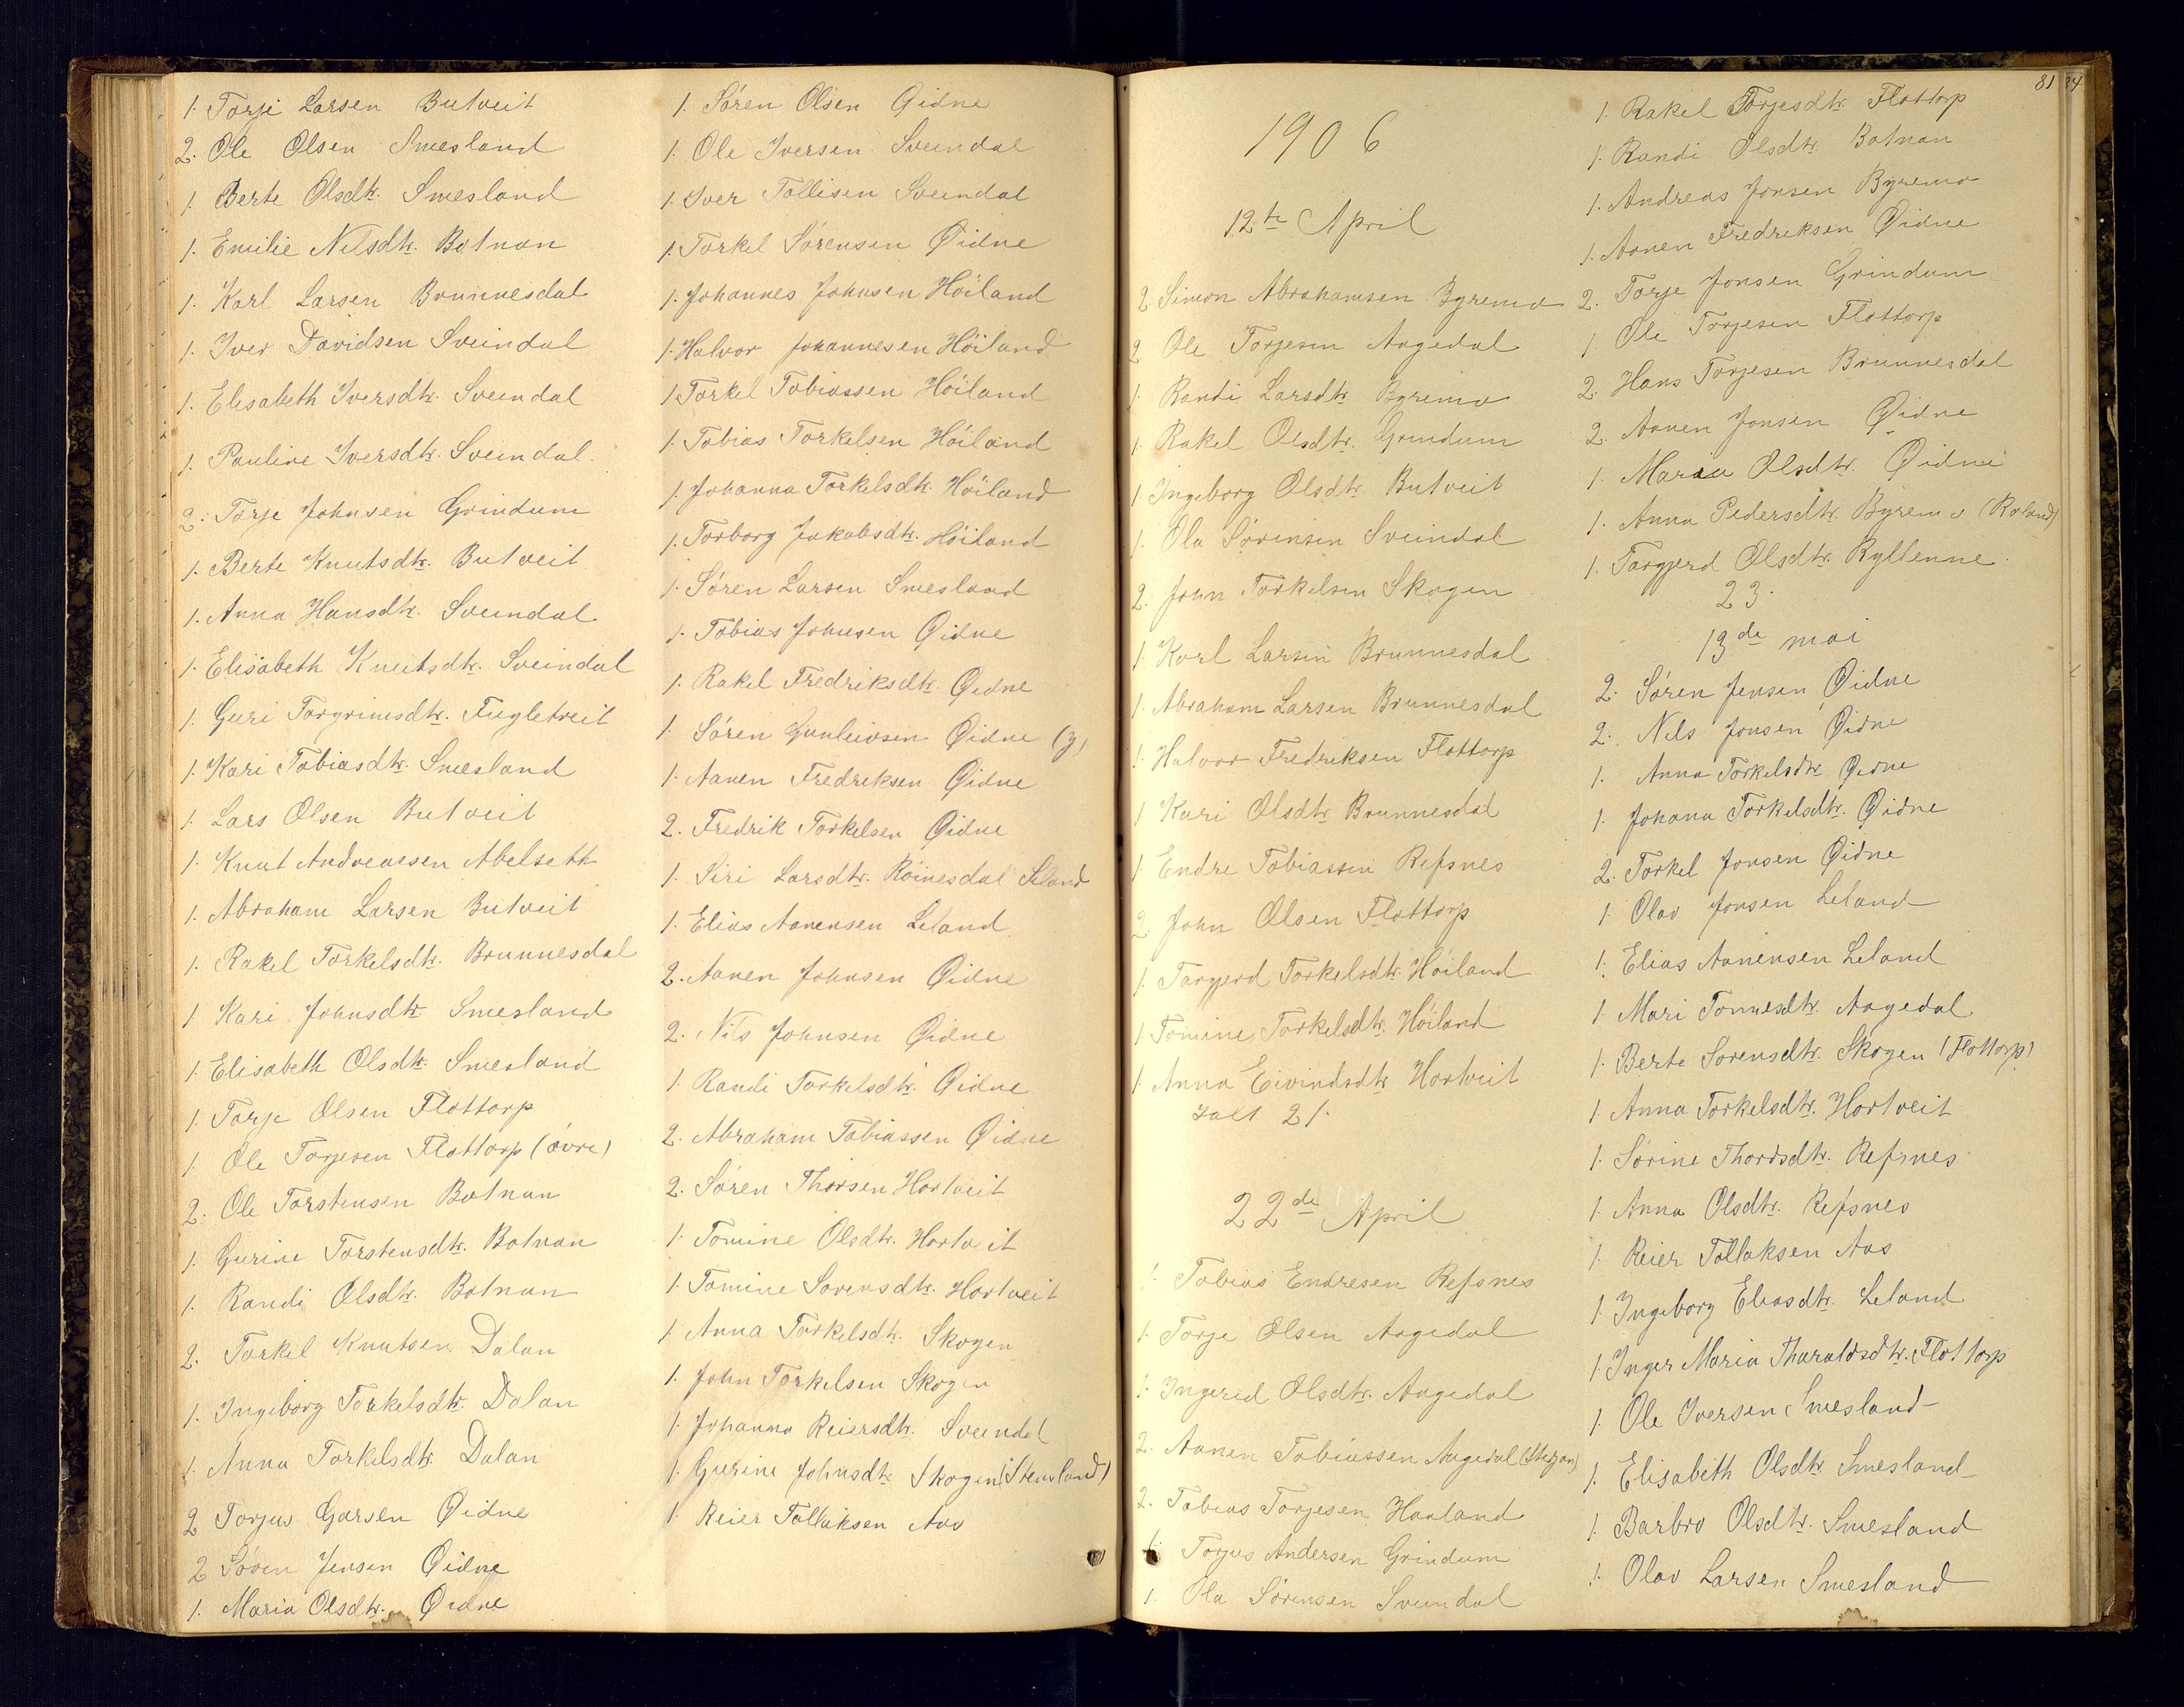 1. Torje Larsen Butveit
2. Ole Olsen Smesland
1. Berte Olsdtr. Smesland
1. Emilie Nilsdtr. Botnan
1. Karl Larsen Brunnesdal
1. Iver Davidsen Sveindal
1. Elisabeth Iversdtr. Sveindal
1. Pauline Iversdtr. Sveindal.
2. Torje Johnsen Grindum
1. Berte Knutsdtr. Butveit
1. Anna Hansdtr. Sveindal
1. Elisabeth Knutsdtr. Sveindal
1. Guri Torgrimsdtr. Fugletveit
1. Kari Tobiasdtr. Smesland
1. Lars Olsen Butveit
1. Knut Andreassen Abelseth
1. Abraham Larsen Butveit
1. Rakel Torkelsdtr. Brunnesdal
1 Kari Johnsdtr Smesland
1. Elisabeth Olsdtr. Smesland
1 Torje Olsen Flottorp
1. Ole Torjesen Flottorp (övre)
2. Ole Torstensen Botnan
1. Gurine Torstensdtr. Botnan
1. Randi Olsdtr. Botnan
2. Torkel Knutsen Dalan
1. Ingeborg Torkelsdtr. Dalan
1. Anna Torkelsdtr. Dalan
2 Torjus Garsen Øidne
2 Søren Jensen Øidne
1. Maria Olsdtr. Øidne
1. Søren Olsen Øidne
1. Ole Iversen Sveindal
1. Iver Tollisen Sveindal
1. Torkel Sørensen Øidne
1. Johannes Johnsen Höiland
1. Halvor Johannesen Höiland
1. Torkel Tobiassen Höiland
1. Tobias Torkelsen Höiland
1. Johanna Torkelsdtr. Höiland
1. Torborg Jakobsdtr. Höiland
1. Søren Larsen Smesland
1. Tobias Johnsen Øidne
1. Rakel Fredriksdtr. Øidne
1. Søren Gunleivsen Øidne (y)
1. Aanen Fredriksen Øidne
2. Fredrik Torkelsen Øidne
1. Siri Larsdtr. Röinesdal
1. Elias Aanensen Leland
2. Aanen Johnsen Øidne
2. Nils Johnsen Øidne
1. Randi Torkelsdtr. Øidne
2. Abraham Tobiassen Øidne
2. Søren Thorsen Hortveit
1. Tomine Olsdtr. Hortveit
1. Tomine Sørensdtr. Hortveit
1. Anna Torkelsdtr. Skogen
1. John Torkelsen Skogen
1. Johanna Reiersdtr. Sveindal
1. Gurine Johnsdtr Skogen (Stensland)
1. Reier Tollaksen Aas
1906
12te April
2 Simon Abrahamsen Byremo
2 Ole Torjesen Aagedal
1. Randi Larsdtr Byremo
1. Rakel Olsdtr. Grindum
1 Ingeborg Olsdtr. Butveit
1. Ola Sørensen Sveindal
2. John Torkelsen Skogen
1. Karl Larsen Brunnesdal
1. Abraham Larsen Brunnesdal
1. Halvor Fredriksen Flottorp
1 Kari Olsdtr Brunnesdal
1 Endre Tobiassen Refsnes
2 John Olsen Flottorp
1. Targjerd Torkelsdtr. Höiland
1 Tomine Torkelsdtr. Höiland
1 Anna Eivindsdtr Hortveit
Ialt 21.
22de April
1. Tobias Endresen Refsnes
1. Torje Olsen Aagedal
1. Ingerid Olsdtr. Aagedal
2. Aanen Tobiassen Aagedal
2. Tobias Torjesen Haaland
1. Torjus Andersen Grindum
1. Ola Sørensen Sveindal
81
1. Rakel Torjesdtr. Flottorp
1. Randi Olsdtr. Botnan
1. Andreas Jonsen Byremo
1. Aanen Fredriksen Øidne
2. Torje Jonsen Grindum
1. Ole Torjesen Flottorp
2. Hans Torjesen Brunnesdal
2. Aanen Jonsen Øidne
1. Maria Olsdtr. Øidne
1. Anna Pedersdtr. Byremo
1. Targjerd Olsdtr. Kyllenne.
23.
13de mai
2. Søren Jensen Øidne
2. Nils Jonsen Øidne
1. Anna Torkelsdtr Øidne
1. Johana Torkelsdtr. Øidne
2. Torkel Jonsen Øidne
1. Olav Jonsen Leland
1. Elias Aanensen Leland
1. Mari Tomesdtr. Aagedal
1. Berte Sørensdtr. Skogen (Flottorp)
1. Anna Torkelsdtr. Hortveit
1. Sørine Thordsdtr. Refsnes
1. Anna Olsdtr. Refsnes
1. Reier Tollaksen Aas
1. Ingeborg Eliasdtr. Leland
1. Inger Maria Tharaldsdtr. Flottorp
1. Ole Iversen Smesland
1. Elisabeth Olsdtr. Smesland
1. Barbro Olsdtr. Smesland
1. Olav Larsen Smesland